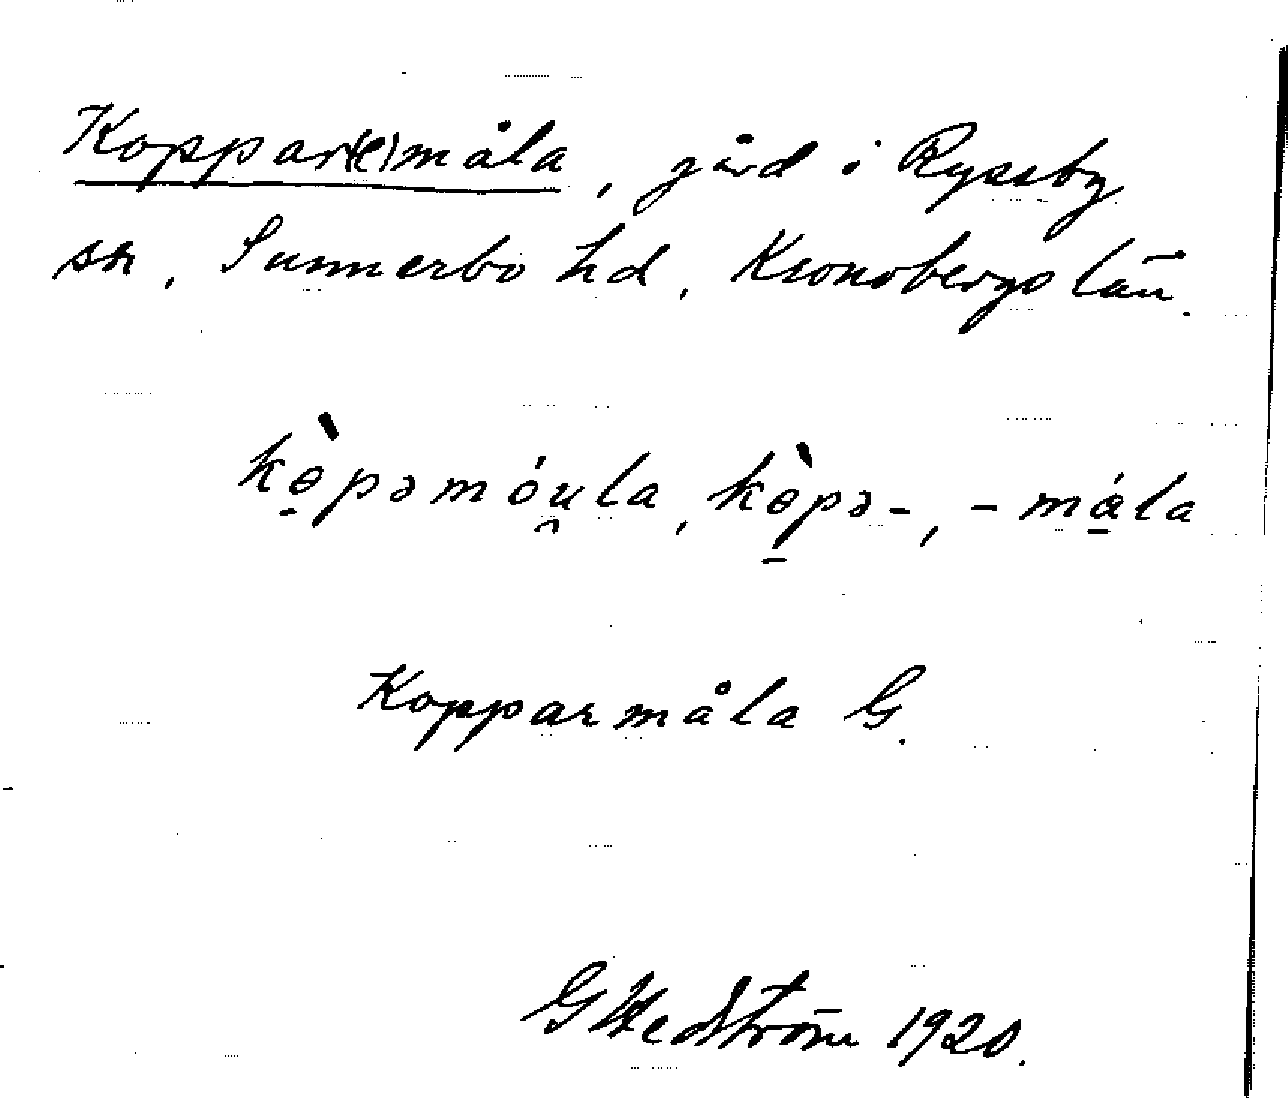 Koppar(e)måla, gård i Ryssby
sn, Sunnerbo hd, Kronobergs län.
kɵ̱̀pəmóu̯la, kɵ̱̀pə-, -mɑ̱́la
Kopparmåla G.
G Hedström 1920.